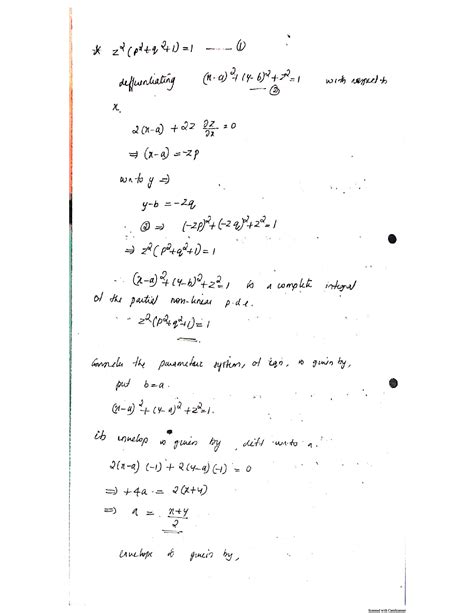 * z²(p²+q²+1)=1 —— (1)
differentiating (x-a)²+(y-b)²+z²=1 with respect to
—— (2)
x.
2(x-a) + 2z ∂z/∂x = 0
⇒ (x-a) = -zp
w.r.to y ⇒
y-b = -zq
∴ (2) ⇒ (-zp)²+(-zq)²+z²=1
⇒ z²(p²+q²+1)=1
∴ (x-a)²+(y-b)²+z²=1 is a complete integral
of the partial non-linear p.d.e.
z²(p²+q²+1)=1
Consider the parametric system, of eqn, is given by,
put b=a.
(x-a)²+(y-a)²+z²=1.
its envelop is given by, diff w.r.to a.
2(x-a)(-1)+2(y-a)(-1) = 0
⇒ +4a = 2(x+y)
⇒ a = x+y/2
envelope is given by,
Scanned with CamScanner